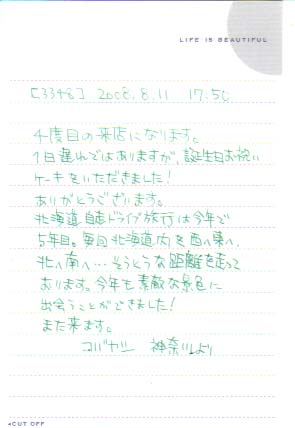 LIFE IS BEAUTIFUL
[3348] 2008.8.11 17:50
4度目の来店になります。
1日遅れではありますが、誕生日お祝い
ケーキをいただきました!
ありがとうございます。
北海道自走ドライブ旅行は今年で
5年目。毎回北海道内を西へ東へ、
北へ南へ…そうとうな距離を走って
おります。今年も素敵な景色に
出会うことができました!
また来ます。
コバヤシ 神奈川より
◂CUT OFF